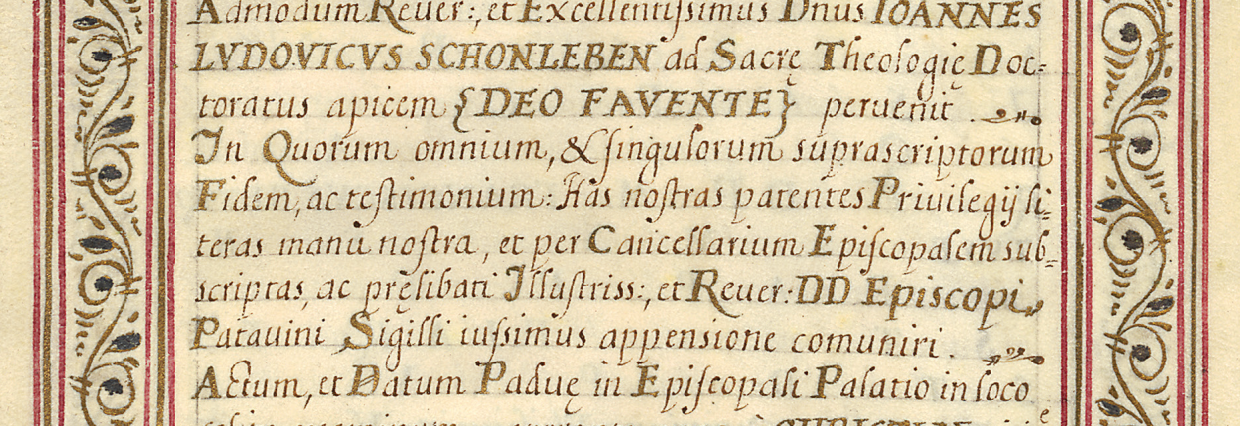 Admodum Reuer:, et Excellentissimus Dnus IOANNES
LVDOVICVS SCHONLEBEN ad Sacrę Theologię Doc=
toratus apicem {DEO FAVENTE} peruenit.
In Quorum omnium, & singulorum suprascriptorum
Fidem, ac testimonium: Has nostras patentes Priuilegij li=
teras manu nostra, et per Cancellarium Episcopalem sub=
scriptas, ac pręlibati Illustriss:, et Reuer: DD Episcopi
Patauini Sigilli iussimus appensione comuniri.
Actum, et Datum Paduę in Episcopali Palatio in loco